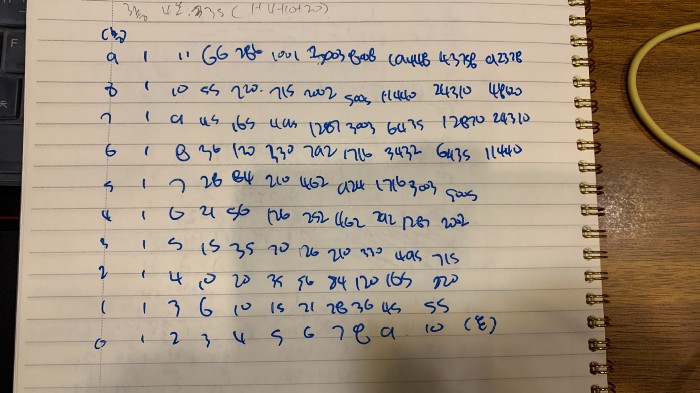 (층)
9 1 11 66 286 1001 3003 8008 19448 43758 92378
8 1 10 55 220 715 2002 5005 11440 24310 48620
7 1 9 45 165 495 1287 3003 6435 12870 24310
6 1 8 36 120 330 792 1716 3432 6435 11440
5 1 7 28 84 210 462 924 1716 3003 5005
4 1 6 21 56 126 252 462 792 1287 2002
3 1 5 15 35 70 126 210 330 495 715
2 1 4 10 20 35 56 84 120 165 220
1 1 3 6 10 15 21 28 36 45 55
0 1 2 3 4 5 6 7 8 9 10 (호)